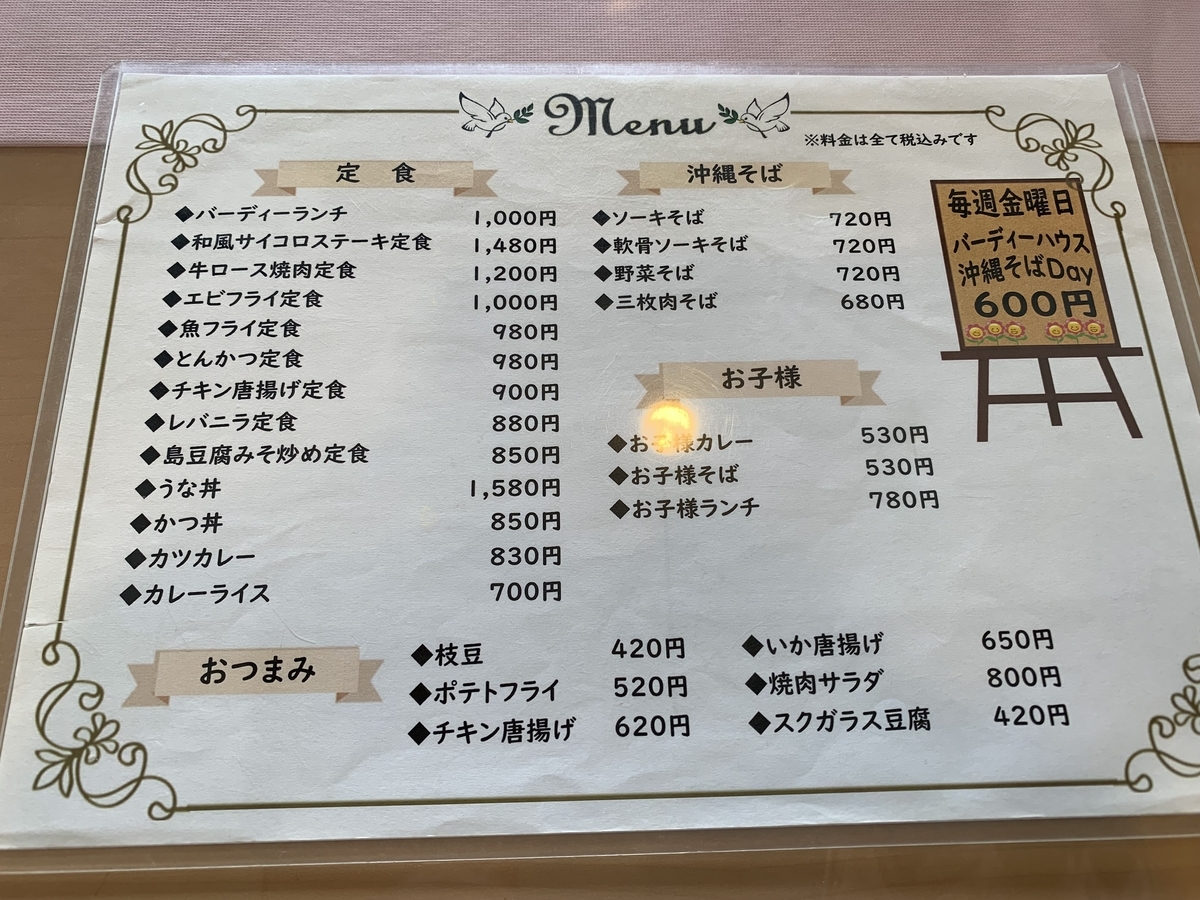 Menu
※料金は全て税込みです
定 食
◆バーディーランチ 1,000円
◆和風サイコロステーキ定食 1,480円
◆牛ロース焼肉定食 1,200円
◆エビフライ定食 1,000円
◆魚フライ定食 980円
◆とんかつ定食 980円
◆チキン唐揚げ定食 900円
◆レバニラ定食 880円
◆島豆腐みそ炒め定食 850円
◆うな丼 1,580円
◆かつ丼 850円
◆カツカレー 830円
◆カレーライス 700円
沖縄そば
◆ソーキそば 720円
◆軟骨ソーキそば 720円
◆野菜そば 720円
◆三枚肉そば 680円
毎週金曜日
バーディーハウス
沖縄そばDay
600円
お子様
◆お子様カレー 530円
◆お子様そば 530円
◆お子様ランチ 780円
おつまみ
◆枝豆 420円
◆ポテトフライ 520円
◆チキン唐揚げ 620円
◆いか唐揚げ 650円
◆焼肉サラダ 800円
◆スクガラス豆腐 420円